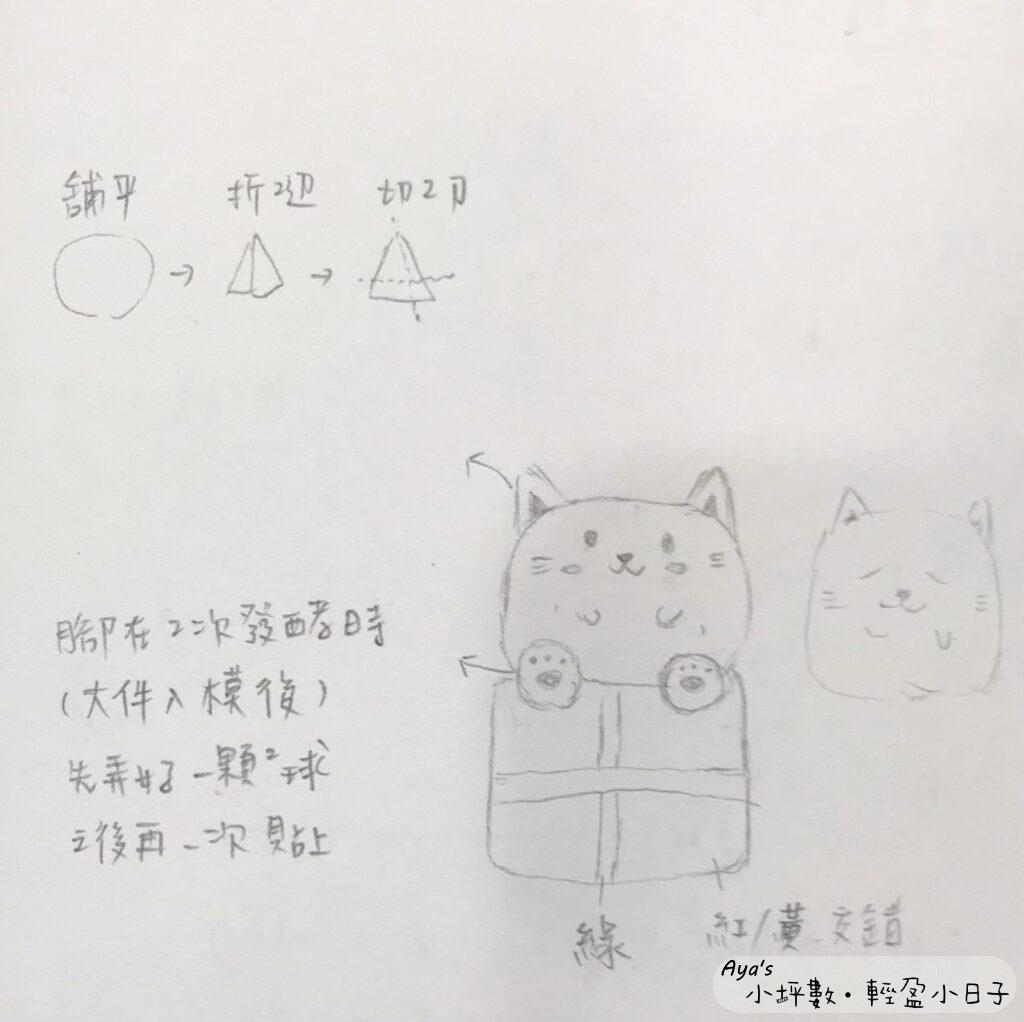 舖平 折2边 切2刀
腳在2次發酵時
(大件入模後)
先弄好一顆2球
之後再一次貼上
綠
紅/黃 交錯
Aya's
小坪數·輕盈小日子